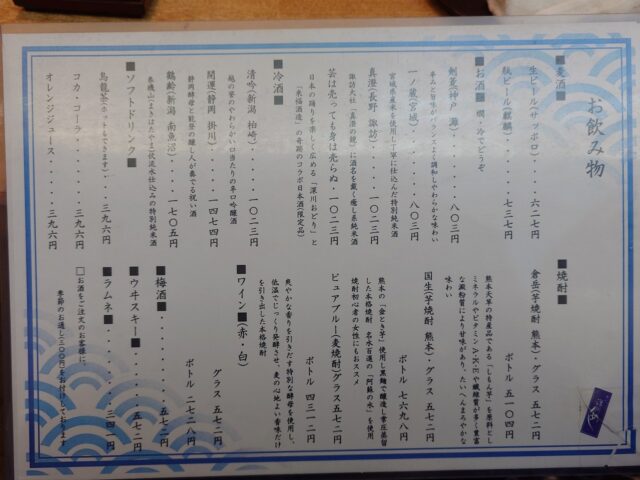 お飲み物
■麦酒■
生ビール(サッポロ)・・・・六二七円
瓶ビール(麒麟)・・・・・七三七円
■お酒■ 燗、冷でどうぞ
剣菱(神戸 灘)・・・・・八〇三円
辛みと旨味がバランスよく調和しやわらかな味わい
一ノ蔵(宮城)・・・・・八〇三円
宮城県産米を使用し丁寧に仕込んだ特別純米酒
真澄(長野 諏訪)・・・・一〇二三円
諏訪大社「真澄の鏡」に酒名を戴く癒し系純米酒
芸は売っても身は売らぬ・一〇二三円
日本の踊りを楽しく広める「深川おどり」と
「米福酒造」の奇跡のコラボ日本酒(限定品)
■冷酒■
清吟(新潟 柏崎)・・・・一〇二三円
越の雪のやわらかい口当たりの辛口吟醸酒
開運(静岡 掛川)・・・・一四七四円
静岡酵母と能登の醸し人が奏でる祝い酒
鶴齢(新潟 南魚沼)・・・一七〇五円
巻機山(まきはたやま)伏流水仕込みの特別純米酒
■ソフトドリンク■
烏龍茶(ホットもできます)・・・三九六円
コカ・コーラ・・・・・・三九六円
オレンジジュース・・・・三九六円
■焼酎■
倉岳(芋焼酎 熊本)・グラス 五七二円
ボトル 五一〇四円
熊本天草の特産品である「しもん芋」を原料とし
ミネラルやビタミンAKEや繊維質が多く豊富
な澱粉質により甘味があり、たいへんまろやかな
味わい
国生(芋焼酎 熊本)・グラス 五七二円
ボトル 七六九八円
熊本の「金とき芋」使用し黒麹で醸造し常圧蒸留
した本格焼酎 名水百選の「阿蘇の水」を使用
焼酎初心者の女性にもおススメ
ピュアブルー(麦焼酎)グラス五七二円
ボトル 四三一二円
爽やかな香りを引きだす特別な酵母を使用し、
低温でじっくり発酵させ、麦の心地よい香味だけ
を引き出した本格焼酎
■ワイン■(赤・白)
グラス 五七二円
ボトル 二七二八円
■梅酒■・・・・・・五七二円
■ウヰスキー■・・・・五七二円
■ラムネ■・・・・・・三四一円
□お酒をご注文のお客様に、
季節のお通し(三〇〇円)をお付けしております